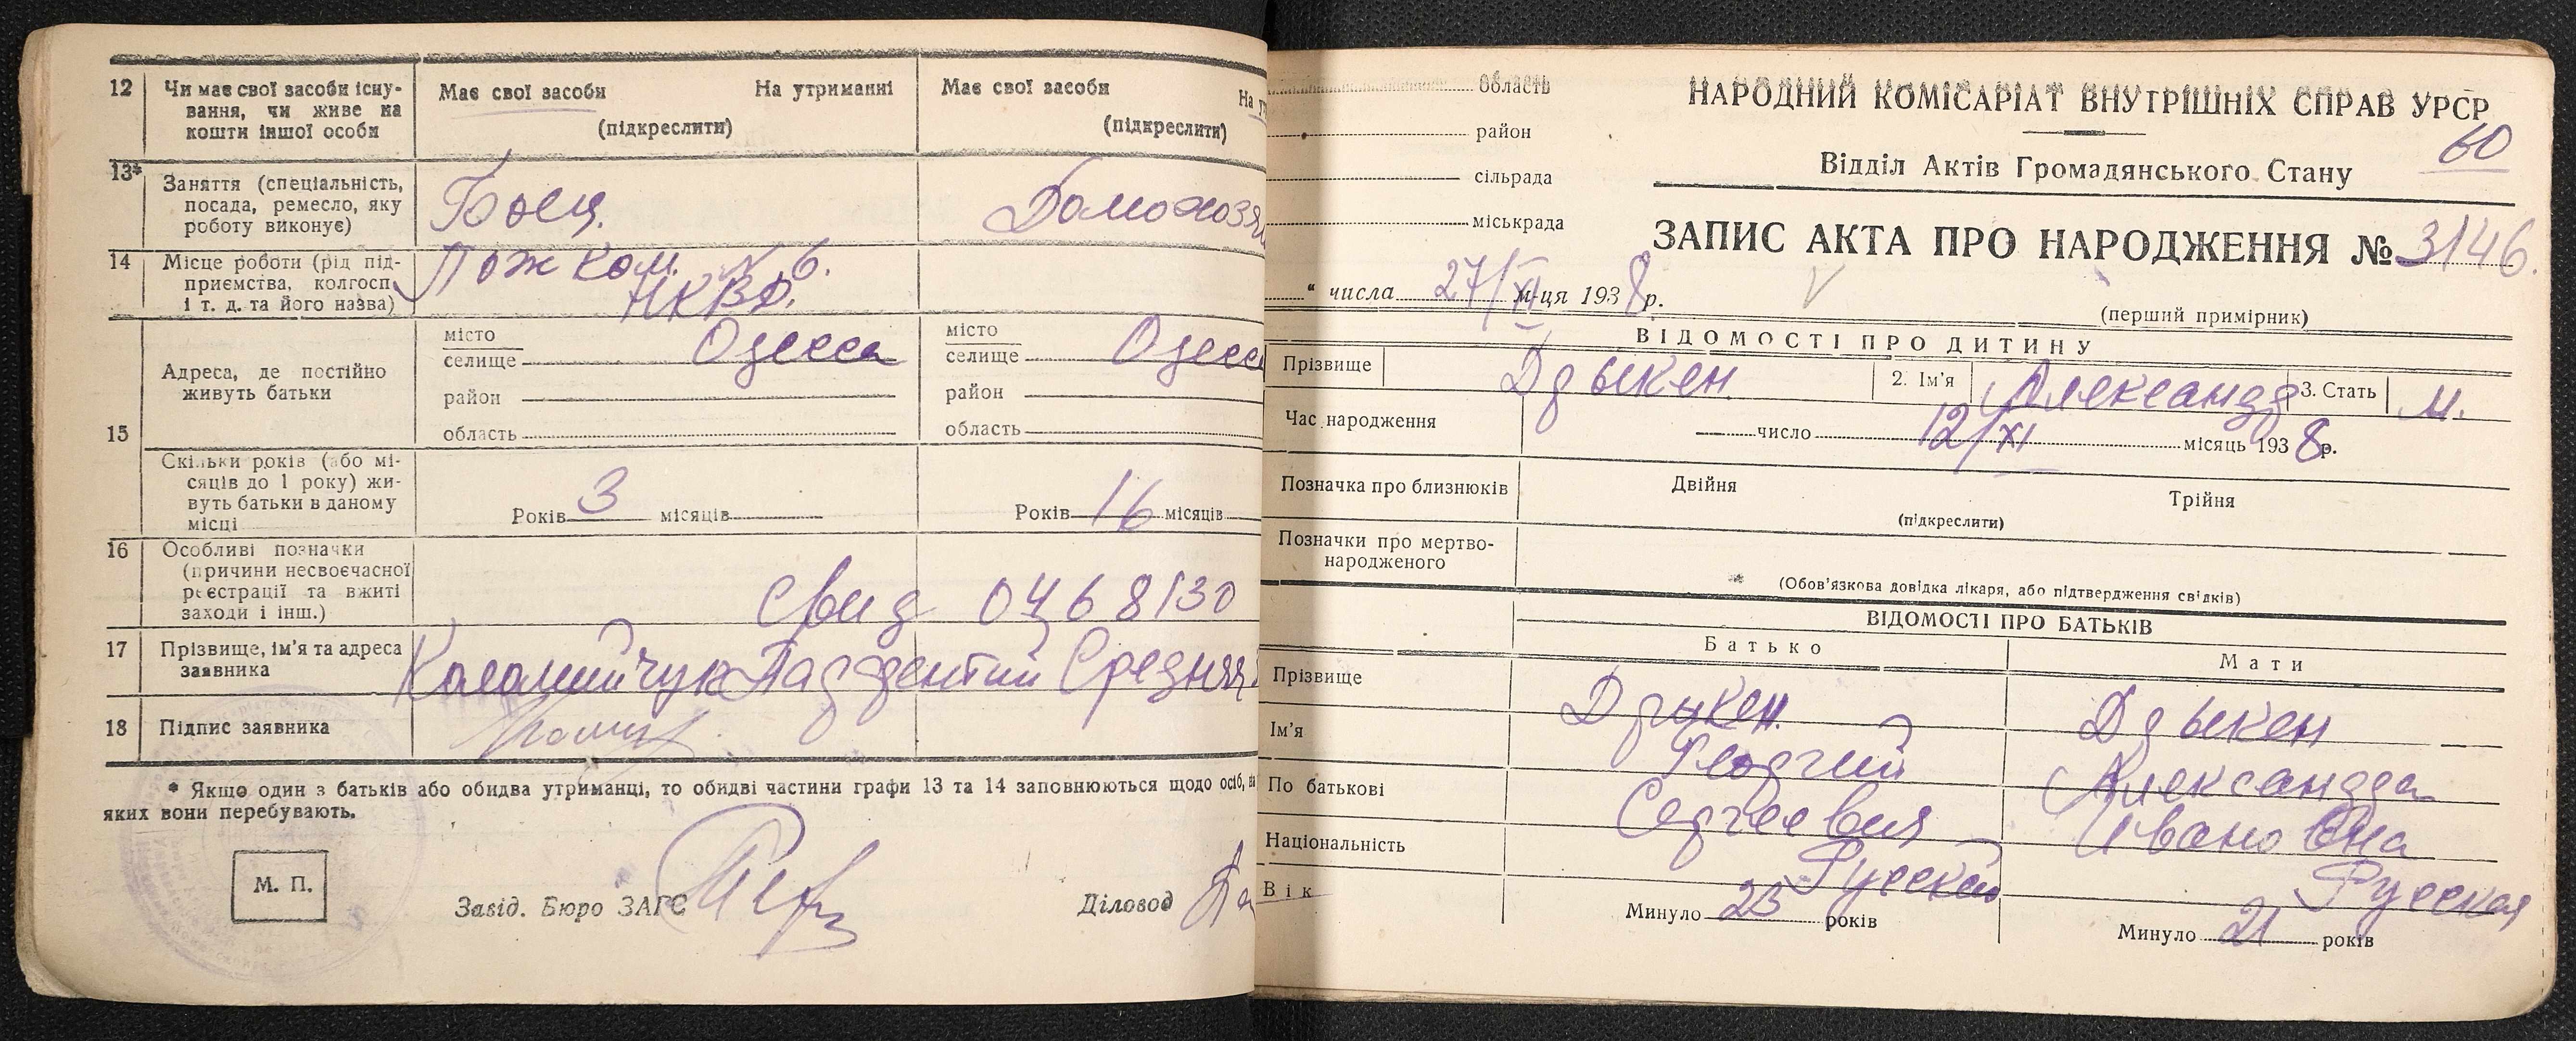 12
Чи має свої засоби існу-
вання, чи живе на
кошти іншої особи
Має свої засоби На утриманні
(підкреслити)
Має свої засоби На
(підкреслити)
13*
Заняття (спеціальність,
посада, ремесло, яку
роботу виконує)
Боец.
Домохозя
14
Місце роботи (рід під-
приємства, колгосп
і т. д. та його назва)
Пож ком. № 6.
НКВД.
15
Адреса, де постійно
живуть батьки
місто
селище Одесса
район
область
місто
селище Одесс
район
область
Скільки років (або мі-
сяців до 1 року) жи-
вуть батьки в даному
місці
Років 3 місяців
Років 16 місяців
16
Особливі позначки
(причини несвоєчасної
реєстрації та вжиті
заходи і інш.)
Свид 0468130
17
Прізвище, ім'я та адреса
заявника
Коломийчук Средняя
18
Підпис заявника
* Якщо один з батьків або обидва утриманці, то обидві частини графи 13 та 14 заповнюються щодо осіб, на
яких вони перебувають.
М. П.
Завід. Бюро ЗАГС
Діловод
область
район
сільрада
міськрада
НАРОДНИЙ КОМІСАРІАТ ВНУТРІШНІХ СПРАВ УРСР
60
Відділ Актів Громадянського Стану
ЗАПИС АКТА ПРО НАРОДЖЕННЯ № 3146.
" числа 27/XI м-ця 1938 р.
(перший примірник)
ВІДОМОСТІ ПРО ДИТИНУ
Прізвище
Дрыкен.
2. Ім'я
Александр
3. Стать
м.
Час народження
число 12/XI місяць 1938 р.
Позначка про близнюків
Двійня Трійня
(підкреслити)
Позначки про мертво-
народженого
(Обов'язкова довідка лікаря, або підтвердження свідків)
ВІДОМОСТІ ПРО БАТЬКІВ
Батько
Мати
Прізвище
Дрыкен.
Дрыкен
Ім'я
Георгий
Александра
По батькові
Сергеевич
Ивановна
Національність
Русский
Русская
Вік
Минуло 25 років
Минуло 21 років